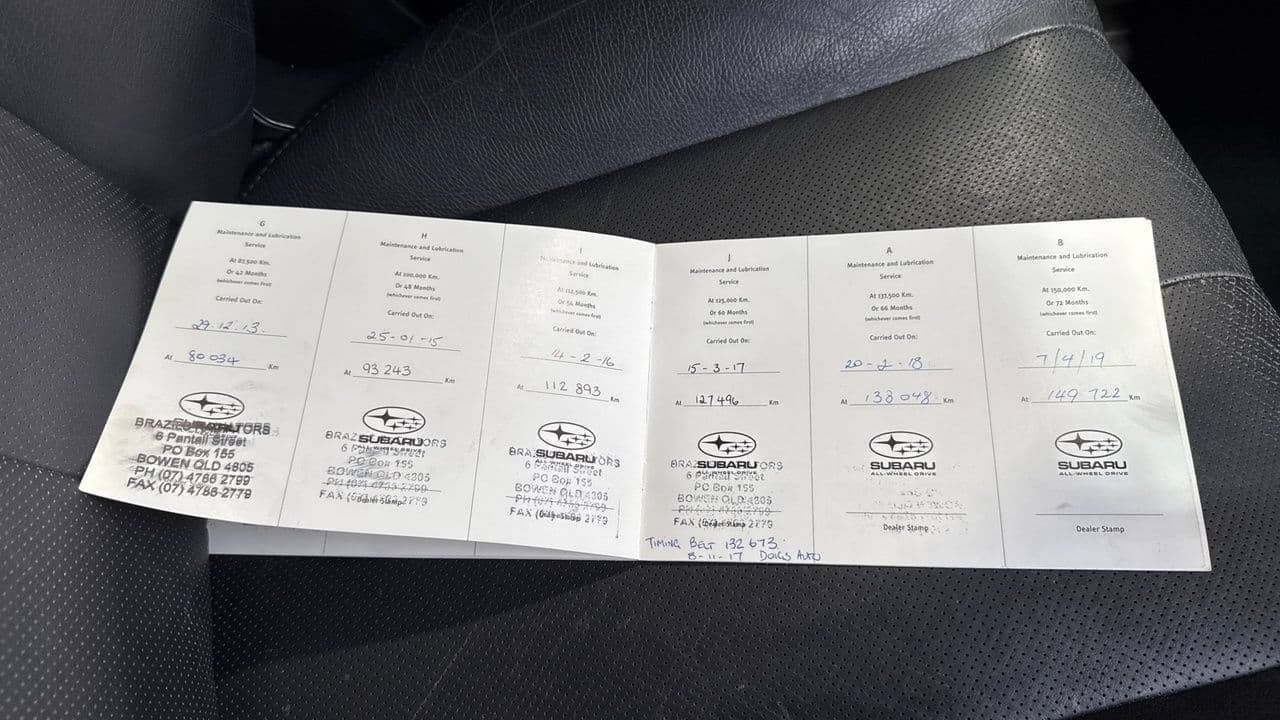 G
Maintenance and Lubrication
Service
At 87,500 Km.
Or 42 Months
(whichever comes first)
Carried Out On:
29.12.13.
At 80 034 Km
6 Pantall Street
PO Box 155
BOWEN QLD 4805
PH (07) 4786 2799
FAX (07) 4786 2779
H
Maintenance and Lubrication
Service
At 100,000 Km.
Or 48 Months
(whichever comes first)
Carried Out On:
25-01-15
At 93 243 Km
SUBARU
ALL-WHEEL DRIVE
PO Box 155
BOWEN QLD 4805
Dealer Stamp
I
Maintenance and Lubrication
Service
At 112,500 Km.
Or 54 Months
(whichever comes first)
Carried Out On:
14-2-16
At 112 893 Km
SUBARU
ALL-WHEEL DRIVE
PO Box 155
BOWEN QLD 4805
J
Maintenance and Lubrication
Service
At 125,000 Km.
Or 60 Months
(whichever comes first)
Carried Out On:
15-3-17
At 127496 Km
SUBARU
ALL-WHEEL DRIVE
PO Box 155
BOWEN QLD 4805
TIMING BELT 132 673.
8-11-17 DOIGS AUTO
A
Maintenance and Lubrication
Service
At 137,500 Km.
Or 66 Months
(whichever comes first)
Carried Out On:
20-2-18
At 138 048 Km
SUBARU
ALL-WHEEL DRIVE
Dealer Stamp
B
Maintenance and Lubrication
Service
At 150,000 Km.
Or 72 Months
(whichever comes first)
Carried Out On:
7/4/19
At 149 722 Km
SUBARU
ALL-WHEEL DRIVE
Dealer Stamp